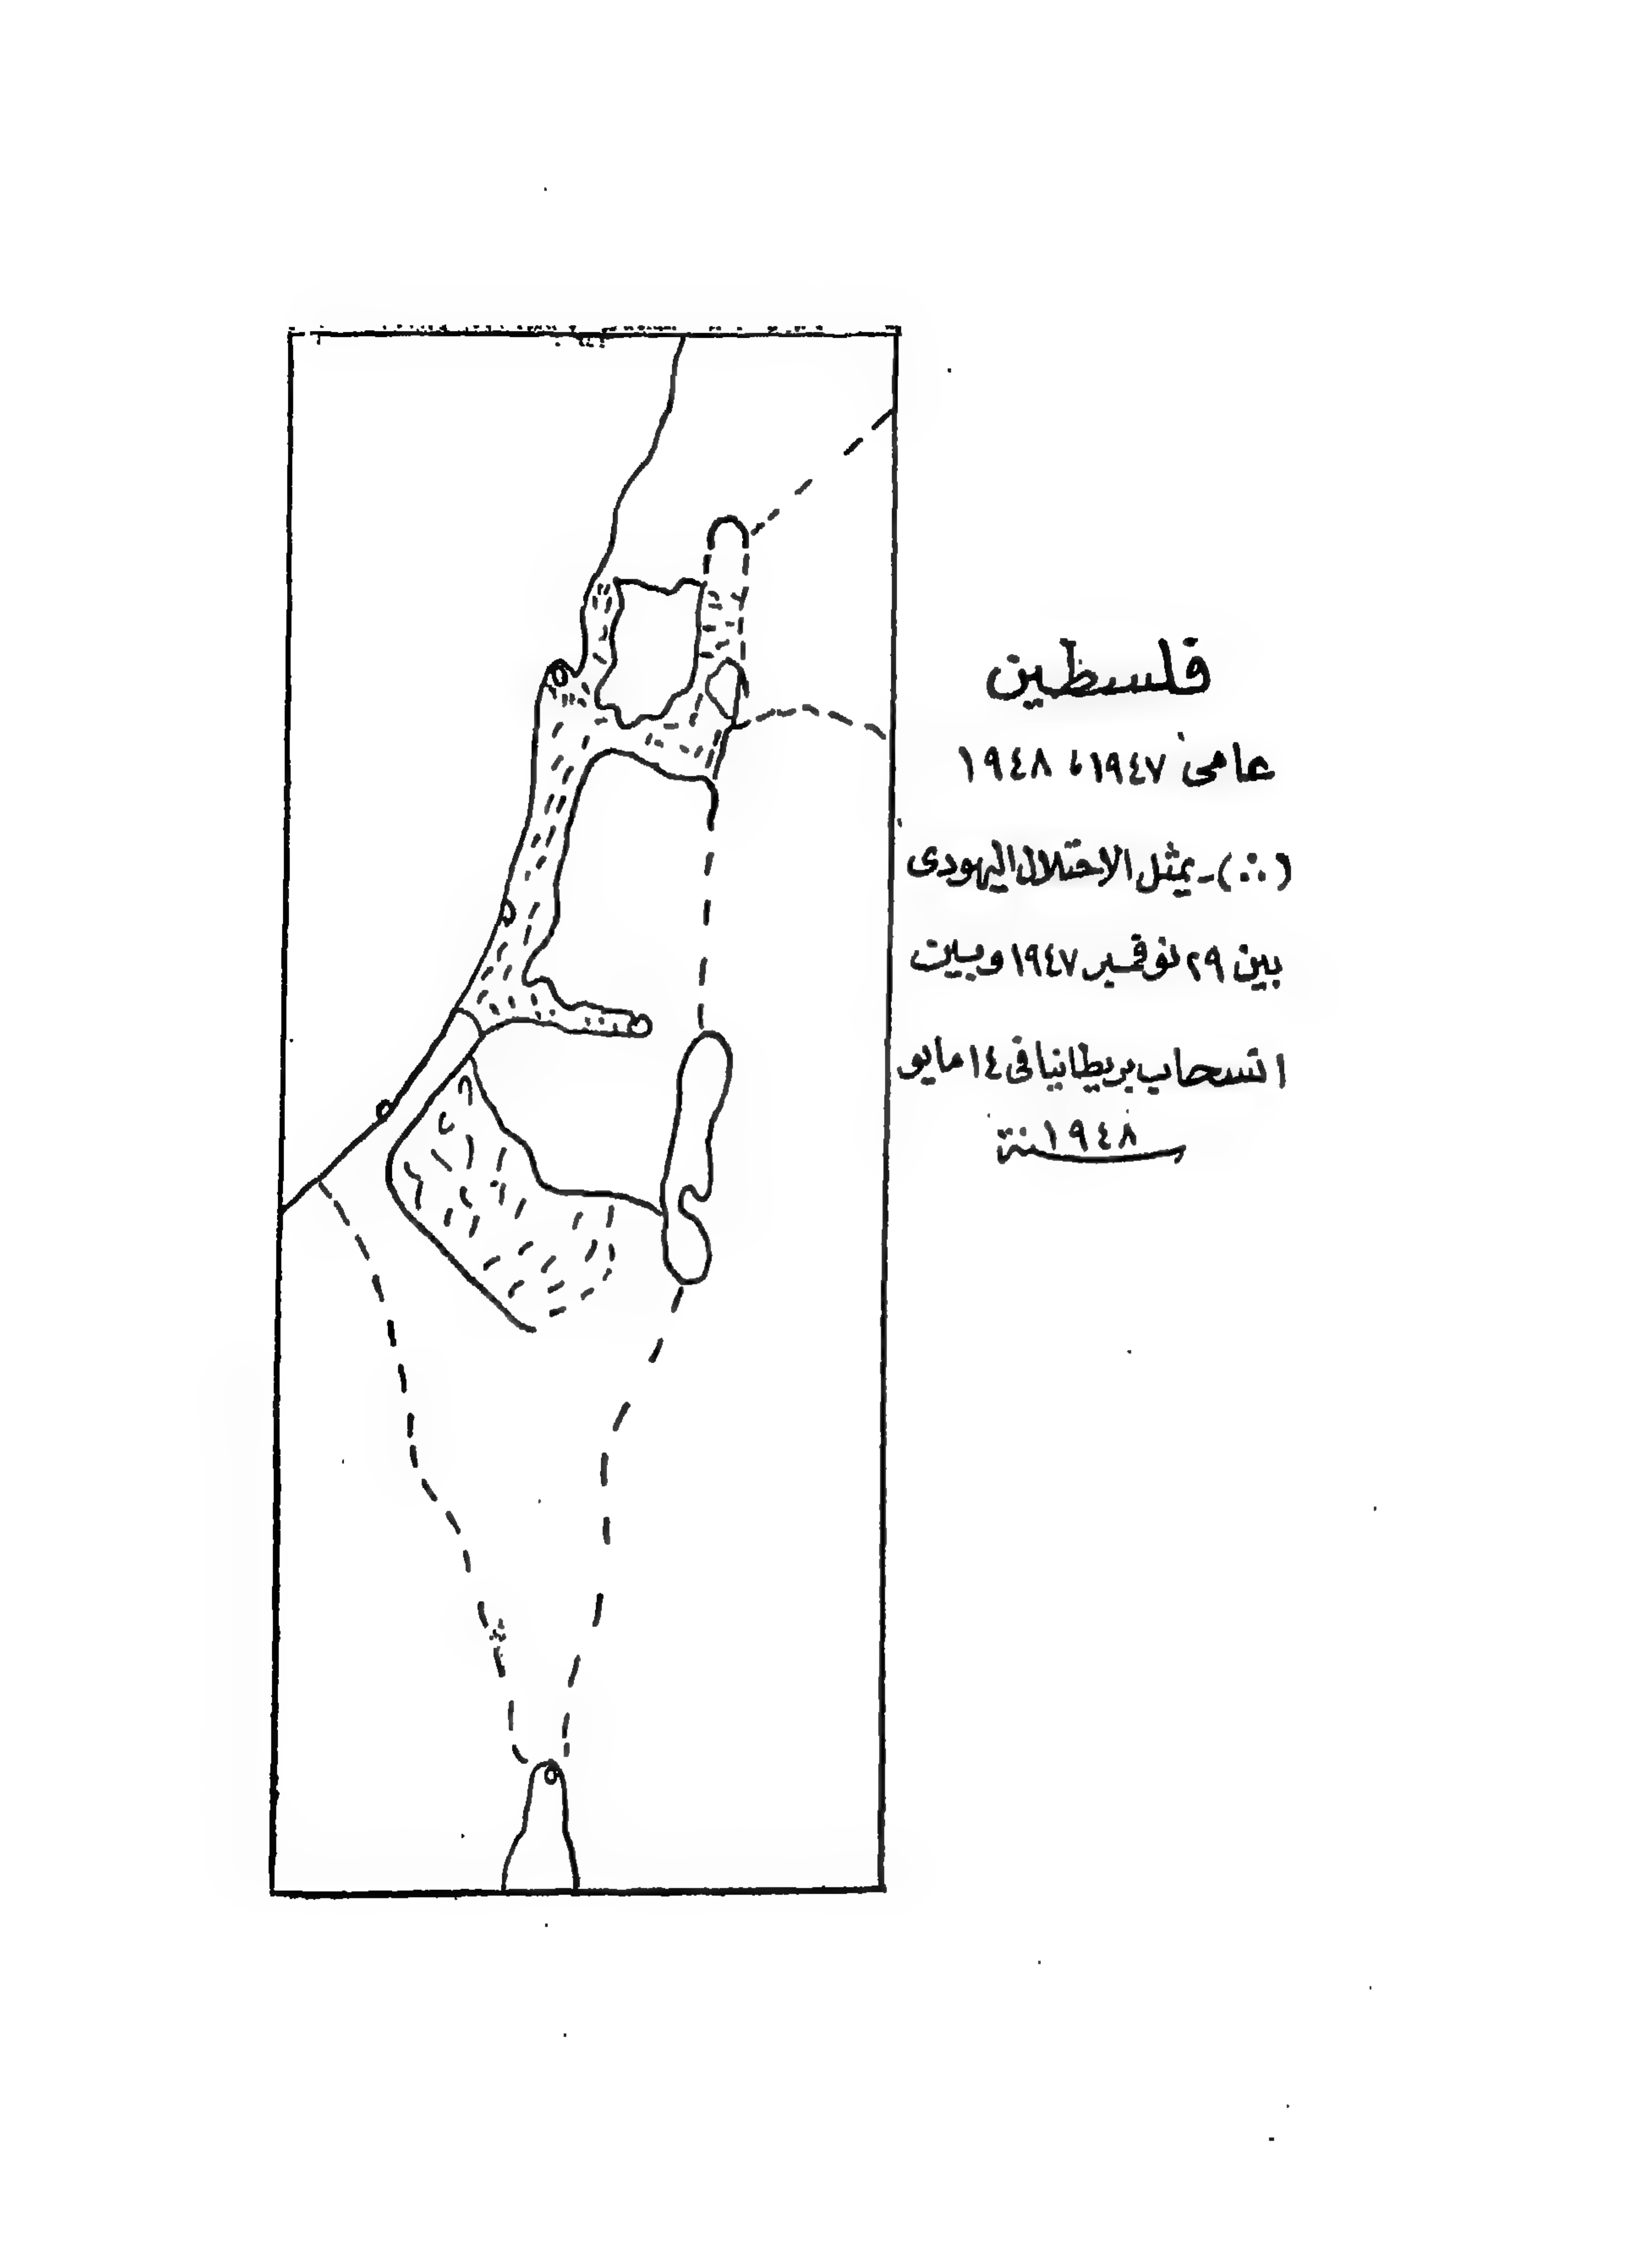 فلسطين
عامى ١٩٤٧، ١٩٤٨
(∴) - يمثل الاحتلال اليهودى
بين ٢٩ نوفمبر ١٩٤٧ وبين
انسحاب بريطانيا فى ١٤ مايو
سنة ١٩٤٨